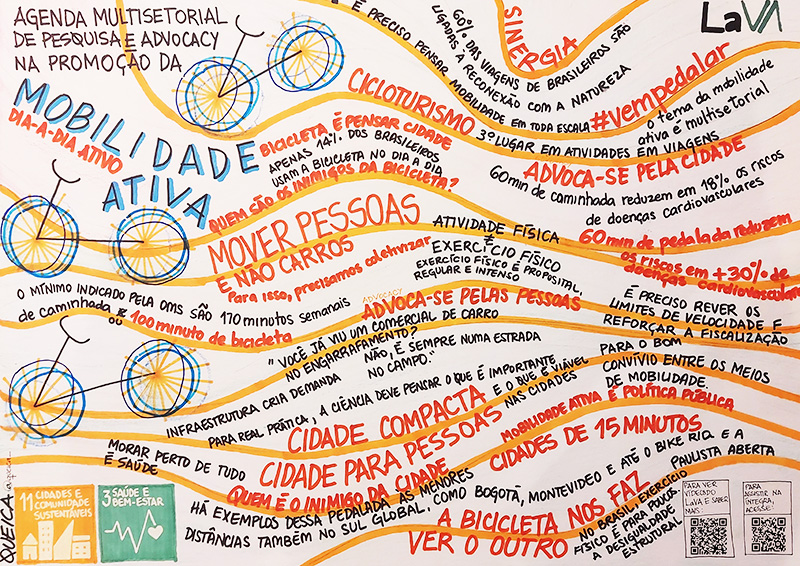 AGENDA MULTISETORIAL
DE PESQUISA E ADVOCACY
NA PROMOÇÃO DA
MOBILIDADE
ATIVA
DIA-A-DIA ATIVO
SINERGIA
LaVA
60% DAS VIAGENS DE BRASILEIROS SÃO
LIGADAS A RECONEXÃO COM A NATUREZA
É PRECISO PENSAR MOBILIDADE EM TODA ESCALA
#vempedalar
o tema da mobilidade
ativa é multisetorial
CICLOTURISMO
3º LUGAR EM ATIVIDADES EM VIAGENS
BICICLETA É PENSAR CIDADE
APENAS 14% DOS BRASILEIROS
USAM A BICICLETA NO DIA A DIA
QUEM SÃO OS INIMIGOS DA BICICLETA?
ADVOCA-SE PELA CIDADE
60 min de caminhada reduzem em 18% os riscos
de doenças cardiovasculares
60 min de pedalada reduzem
os riscos em +30% de
doenças cardiovasculares
MOVER PESSOAS
E NÃO CARROS
Para isso, precisamos coletivizar
ATIVIDADE FÍSICA
É
EXERCÍCIO FÍSICO
EXERCÍCIO FÍSICO É PROPOSITAL,
REGULAR E INTENSO
O MÍNIMO INDICADO PELA OMS SÃO 170 minutos semanais
de caminhada
ou
100 minuto de bicicleta
ADVOCACY
ADVOCA-SE PELAS PESSOAS
"VOCÊ TÁ VIU UM COMERCIAL DE CARRO
NO ENGARRAFAMENTO?
NÃO, É SEMPRE NUMA ESTRADA
NO CAMPO."
É PRECISO REVER OS
LIMITES DE VELOCIDADE E
REFORÇAR A FISCALIZAÇÃO
PARA O BOM
CONVÍVIO ENTRE OS MEIOS
DE MOBILIDADE.
INFRAESTRUTURA CRIA DEMANDA
PARA REAL PRÁTICA, A CIÊNCIA DEVE PENSAR O QUE É IMPORTANTE
E O QUE É VIÁVEL
NAS CIDADES
CIDADE COMPACTA
CIDADE PARA PESSOAS
QUEM É O INIMIGO DA CIDADE
MOBILIDADE ATIVA É POLÍTICA PÚBLICA
CIDADES DE 15 MINUTOS
MORAR PERTO DE TUDO
É SAÚDE
HÁ EXEMPLOS DESSA PEDALADA ÀS MENORES
DISTÂNCIAS TAMBÉM NO SUL GLOBAL, COMO BOGOTÁ, MONTEVIDEO E ATÉ O BIKE RIO E A
PAULISTA ABERTA
A BICICLETA NOS FAZ
VER O OUTRO
NO BRASIL, EXERCÍCIO
FÍSICO É PARA POUCOS
A DESIGUALDADE
ESTRUTURAL
QUEICA
11 CIDADES E
COMUNIDADE
SUSTENTÁVEIS
3 SAÚDE E
BEM-ESTAR
PARA VER
VIDEO DO
LAVA E SABER
MAIS:
PARA
ASSISTIR NA
ÍNTEGRA,
ACESSE: